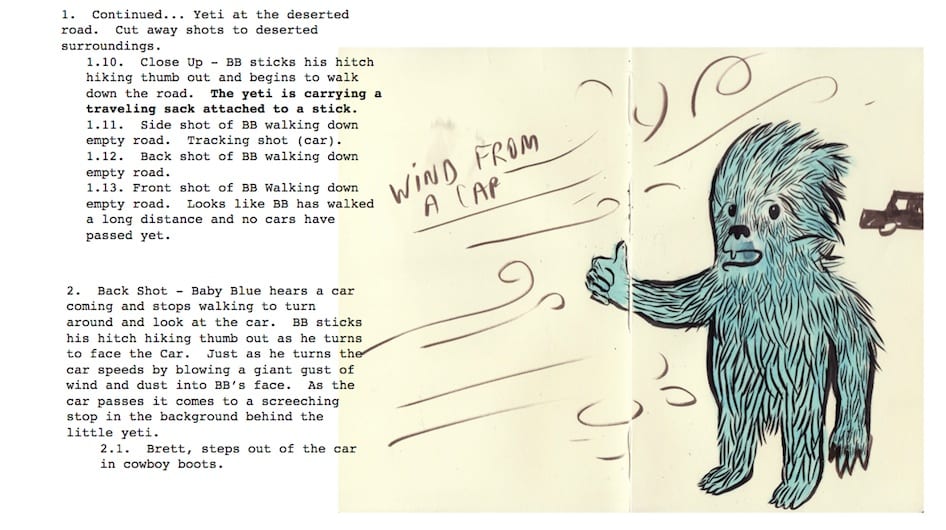 1. Continued... Yeti at the deserted
road. Cut away shots to deserted
surroundings.
1.10. Close Up – BB sticks his hitch
hiking thumb out and begins to walk
down the road. The yeti is carrying a
traveling sack attached to a stick.
1.11. Side shot of BB walking down
empty road. Tracking shot (car).
1.12. Back shot of BB walking down
empty road.
1.13. Front shot of BB Walking down
empty road. Looks like BB has walked
a long distance and no cars have
passed yet.
2. Back Shot – Baby Blue hears a car
coming and stops walking to turn
around and look at the car. BB sticks
his hitch hiking thumb out as he turns
to face the Car. Just as he turns the
car speeds by blowing a giant gust of
wind and dust into BB's face. As the
car passes it comes to a screeching
stop in the background behind the
little yeti.
2.1. Brett, steps out of the car
in cowboy boots.
WIND FROM
A CAR